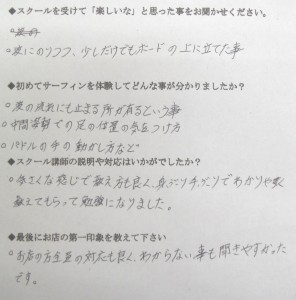 ◆スクールを受けて「楽しいな」と思った事をお聞かせください。
○波にのりつつ、少しだけでもボードの上に立てた事
◆初めてサーフィンを体験してどんな事が分かりましたか？
○波の流れにも止まる所が有るという事
○中間姿勢での足の位置の気をつけ方
○パドルの手の動かし方など
◆スクール講師の説明や対応はいかがでしたか？
感じで教え方も良く、身ぶり手ぶりでわかり安く
教えてもらって勉強になりました。
◆最後にお店の第一印象を教えて下さい
お店の方全員の対応も良く、わからない事も聞きやすかった
です。